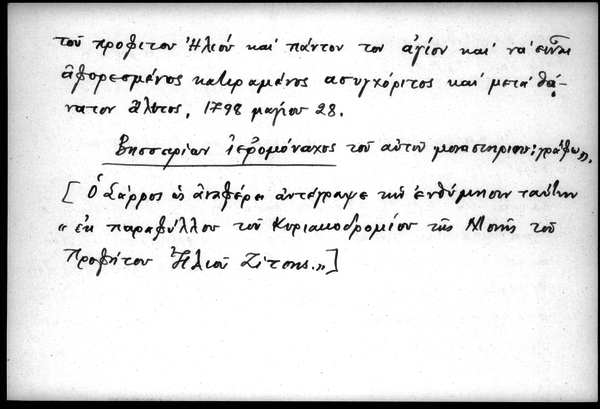 τοῦ προφιτου Ἠλιού καί πάντον τον ἁγίον καί νά εἶναι
ἀφορεσμένος κατιραμένος ασυγχόριτος καί μετά θά-
νατον ἄλυτος, 1798 μαγιου 28.
Βησσαρίων ἱερομόναχος τοῦ αὐτοῦ μοναστηριου: γράφω».
[Ὁ Σάρρος ὡς ἀναφέρει ἀντέγραψε τήν ἐνθύμησιν ταύτην
« ἐκ παραφύλλου τοῦ Κυριακοδρομίου τῆς Μονῆς τοῦ
Προφήτου Ἠλιοῦ Ζίτσης.»]